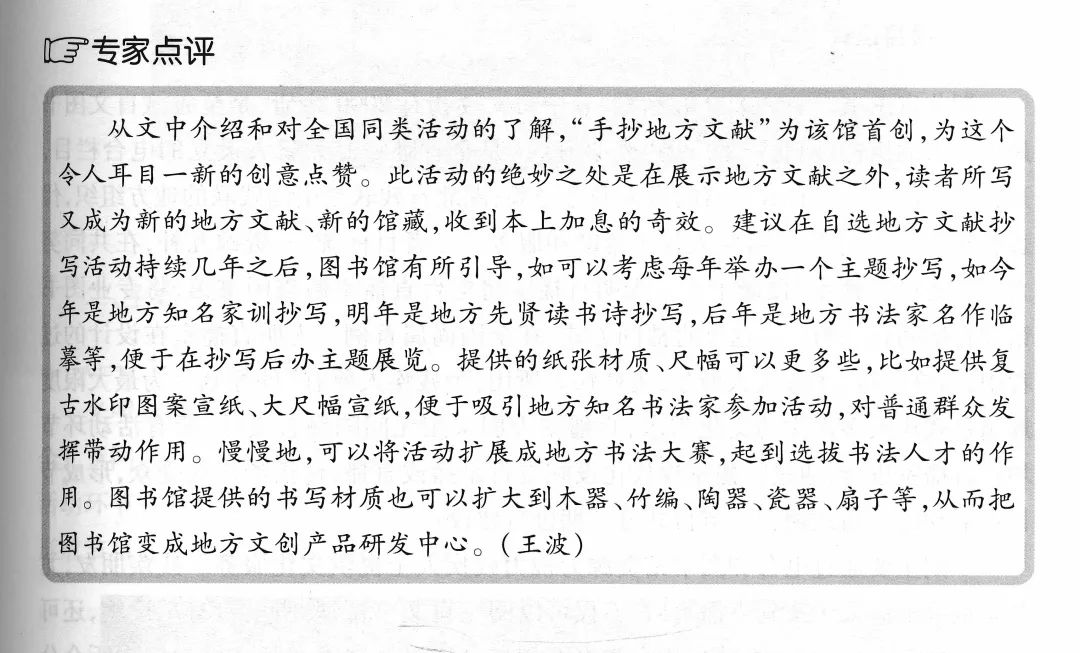 专家点评
从文中介绍和对全国同类活动的了解，“手抄地方文献”为该馆首创，为这个
令人耳目一新的创意点赞。此活动的绝妙之处是在展示地方文献之外，读者所写
又成为新的地方文献、新的馆藏，收到本上加息的奇效。建议在自选地方文献抄
写活动持续几年之后，图书馆有所引导，如可以考虑每年举办一个主题抄写，如今
年是地方知名家训抄写，明年是地方先贤读书诗抄写，后年是地方书法家名作临
摹等，便于在抄写后办主题展览。提供的纸张材质、尺幅可以更多些，比如提供复
古水印图案宣纸、大尺幅宣纸，便于吸引地方知名书法家参加活动，对普通群众发
挥带动作用。慢慢地，可以将活动扩展成地方书法大赛，起到选拔书法人才的作
用。图书馆提供的书写材质也可以扩大到木器、竹编、陶器、瓷器、扇子等，从而把
图书馆变成地方文创产品研发中心。（王波）